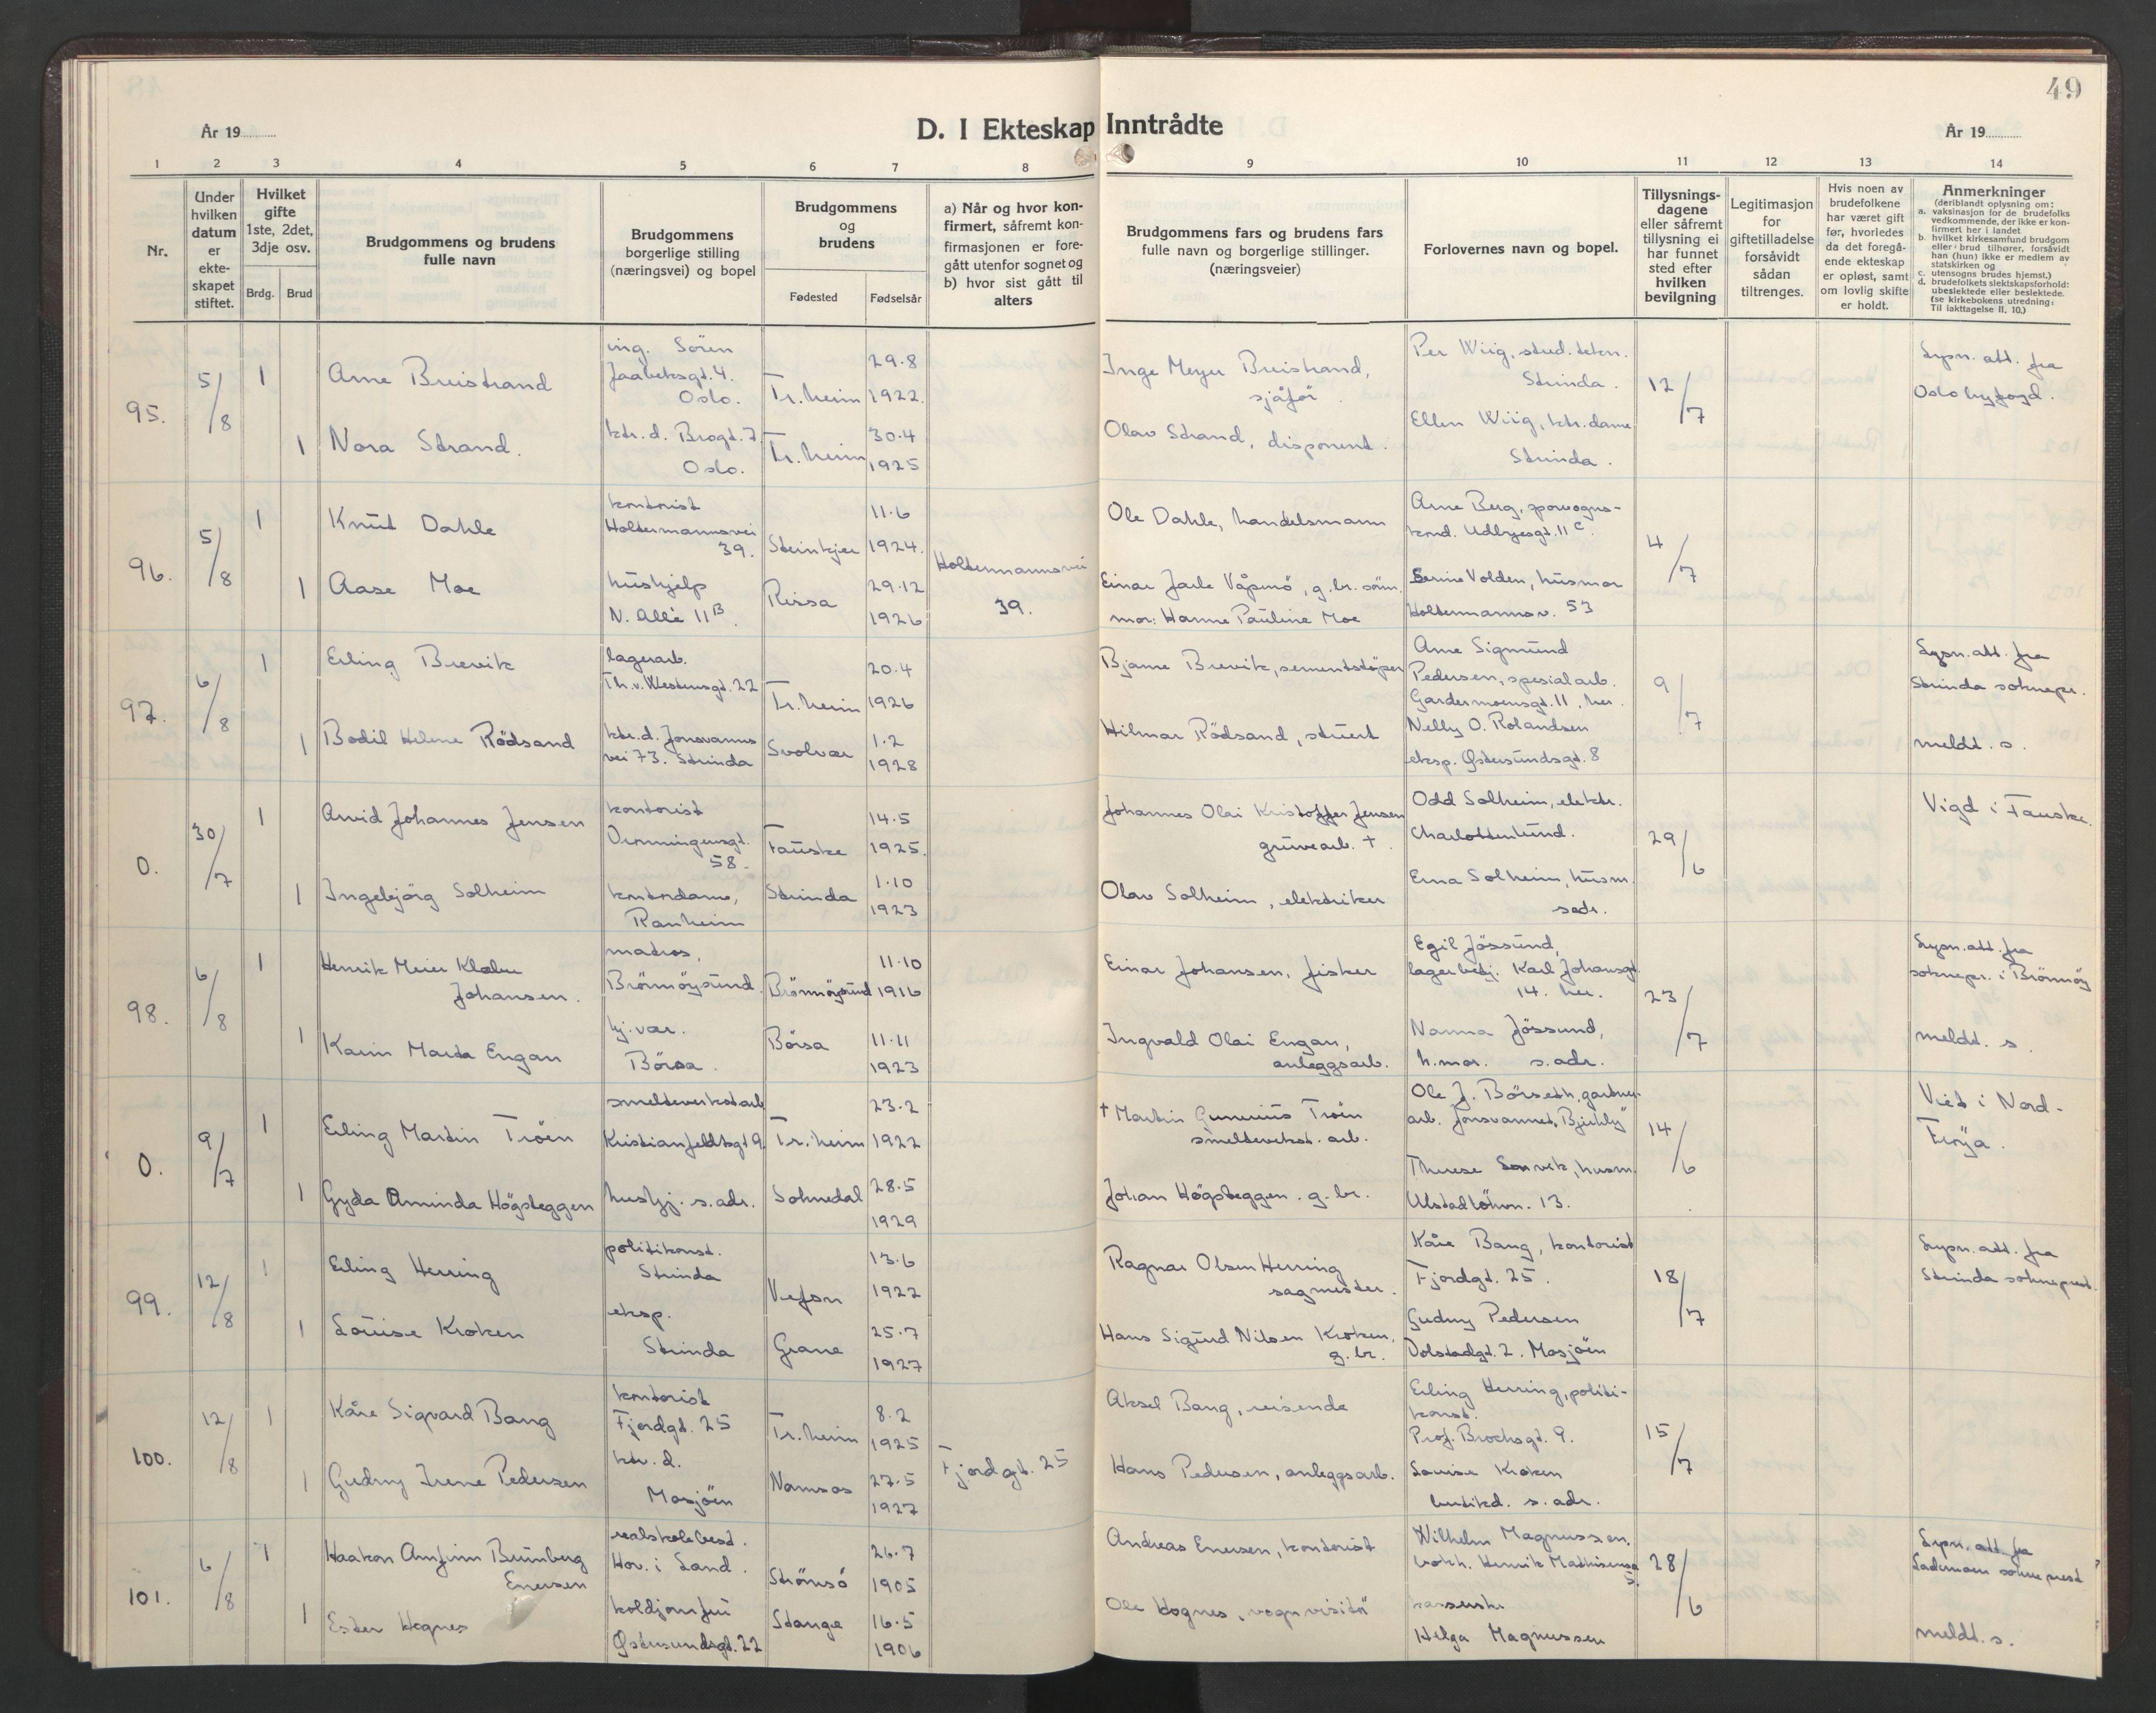 49
År 19
D. I Ekteskap Inntrådte
År 19
1 2 3 4 5 6 7 8 9 10 11 12 13 14
Nr.
Under
hvilken
datum
er
ekte-
skapet
stiftet.
Hvilket
gifte
1ste, 2det,
3dje osv.
Brdg. Brud
Brudgommens og brudens
fulle navn
Brudgommens
borgerlige stilling
(næringsvei) og bopel
Brudgommens
og
brudens
Fødested Fødselsår
a) Når og hvor kon-
firmert, såfremt kon-
firmasjonen er fore-
gått utenfor sognet og
b) hvor sist gått til
alters
Brudgommens fars og brudens fars
fulle navn og borgerlige stillinger.
(næringsveier)
Forlovernes navn og bopel.
Tillysnings-
dagene
eller såfremt
tillysning ei
har funnet
sted efter
hvilken
bevilgning
Legitimasjon
for
giftetilladelse
forsåvidt
sådan
tiltrenges.
Hvis noen av
brudefolkene
har været gift
før, hvorledes
da det foregå-
ende ekteskap
er opløst, samt
om lovlig skifte
er holdt.
Anmerkninger
(deriblandt oplysning om:
a. vaksinasjon for de brudefolks
vedkommende, der ikke er kon-
firmert her i landet
b. hvilket kirkesamfund brudgom
eller brud tilhører, forsåvidt
han (hun) ikke er medlem av
statskirken og
c. utensogns brudes hjemst.)
d. brudefolkets slektskapsforhold:
ubeslektede eller beslektede.
(se kirkebokens utredning:
Til iakttagelse II, 10.)
95.
5/8
1
Arne Breistrand
ing. Sören
Jaabeksgt. 4.
Oslo.
Tr.heim
29.8
1922.
Inge Meyer Breistrand,
sjåför.
Per Wiig, stud. tekn.
Strinda.
12/7
Lysn. att. fra
Oslo byfogd.
1
Nora Strand.
ktr. d. Brogt. 7
Oslo.
Tr.heim
30.4
1925
Olav Strand, disponent.
Ellen Wiig, ktr. dame
Strinda.
96.
5/8
1
Knut Dahle
kontorist
Holtermannsvei
39.
Steinkjer
11.6
1924.
Holtermannsvei
39.
Ole Dahle, handelsmann
Arne Berg, sporvogns-
kond. Udbyesgt. 11 C.
4/7
1
Aase Moe
hushjelp
N. Allé 11 B.
Rissa
29.12
1926
Einar Jarle Våpmö, g.br. sönn.
mor: Hanne Pauline Moe
Serine Volden, husmor
Holtermannsv. 53
97.
6/8
1
Erling Brevik
lagerarb.
Th. v. Westensgt. 22
Tr.heim
20.4
1926
Bjarne Brevik, sementstöper
Arne Sigmund
Pedersen, spesialarb.
Gardermoensgt. 11, her.
9/7
Lysn. att. fra
Strinda soknepr.
1
Bodil Helene Rödsand
ktr.d. Jonsvanns
vei 73. Strinda
Svolvær
1.2
1928
Hilmar Rödsand, stuert
Nelly O. Rolandsen
eksp. Østersundsgt. 8
meldt. s.
0.
30/7
1
Arvid Johannes Jensen
kontorist
Dronningensgt.
58.
Fauske
14.5
1925.
Johannes Olai Kristoffer Jensen
gruvearb. †.
Odd Solheim, elektr.
Charlottenlund.
29/6
Vigd i Fauske.
1
Ingebjörg Solheim
kontordame,
Ranheim
Strinda
1.10
1923
Olav Solheim, elektriker
Erna Solheim, husm.
s. adr.
98.
6/8
1
Henrik Meier Klæbu
Johansen.
matros,
Brönnöysund.
Brönnöysund
11.10
1916
Einar Johansen, fisker
Egil Jössund,
lagerbetj. Karl Johansgt.
14. her.
23/7
Lysn. att. fra
soknepr. i Brönnöy
1
Karin Marta Engan
hj.vær.
Börsa.
Börsa
11.11
1923
Ingvald Olai Engan,
anleggsarb.
Nanna Jössund,
h.mor. s.adr.
meldt. s.
0.
9/7
1
Erling Martin Tröen
smelteverkstarb
Kristianfeldtsgt 9.
Tr.heim
23.2
1922
† Martin Gunerius Tröen
smelteverkst. arb.
Ole J. Börseth, gartner-
arb. Jonsvannet,
14/6
Viet i Nord-
Fröya.
1
Gyda Aminda Högsteggen
hushj. s.adr.
Soknedal
28.5
1929
Johan Högsteggen. g.br.
Therese Sorvik, husm.
Ulstadlökvn. 13.
99.
12/8
1
Erling Herring
politikonst.
Strinda
Vefsn
13.6
1922
Ragnar Olsen Herring
sagmester.
Kåre Bang, kontorist
Fjordgt. 25.
18/7
Lysn. att. fra
Strinda sokneprest.
1
Louise Kroken
eksp.
Strinda
Grane
25.7
1927
Hans Sigurd Nilsen Kroken,
g.br.
Gudny Pedersen
Dolstadgt. 2. Mosjöen
100.
12/8
1
Kåre Sigvard Bang
kontorist
Fjordgt. 25
Tr.heim
8.2
1925
Fjordgt. 25
Aksel Bang, reisende
Erling Herring, politi-
konst.
Prof. Brochsgt. 9.
15/7
1
Gudny Irene Pedersen
ktr. d.
Mosjöen
Namsos
27.5
1927
Hans Pedersen, anleggsarb.
Louise Kroken
butikd. s. adr.
101.
6/8
1
Haakon Arnfinn Brunberg
Enersen
realskolebest.
Hov. i Land.
Strömsö
26.7
1905
Andreas Enersen, kontorist
Wilhelm Magnussen.
bokh. Henrik Mathisensg
5.
28/6
Lysn. att. fra
Lademoen sokneprest
1
Ester Hognes
koldjomfru
Østersundsgt. 22
Stange
16.5
1906
Ole Hognes, vognvisitör
kasserske
Helga Magnussen
meldt. s.